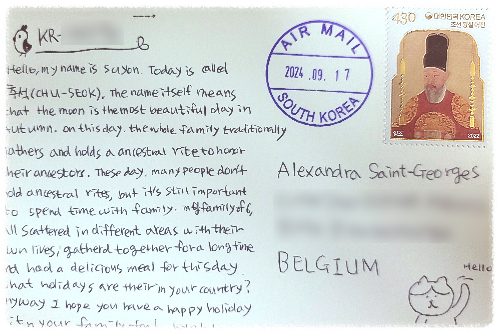 KR-
Hello, my name is suyon. Today is called
추석(CHU-SEOK). The name itself means
hat the moon is the most beautiful day in
utumn. on this day. the whole family traditionally
athers and holds a ancestral rite to honor
heir ancestors. These day. many people don't
old ancestral rites, but it's still important
to spend time with family. my family of 6,
ll scattered in different areas with their
wn lives, gatherd together for a long time
nd had a delicious meal for this day
hat holidays are their in your country?
nyway I hope you have a happy holiday
ith your family
AIR MAIL
2024.09.17
SOUTH KOREA
430 대한민국 KOREA
조선 왕실 어진
1392 2022
Alexandra Saint-Georges
BELGIUM
Hello